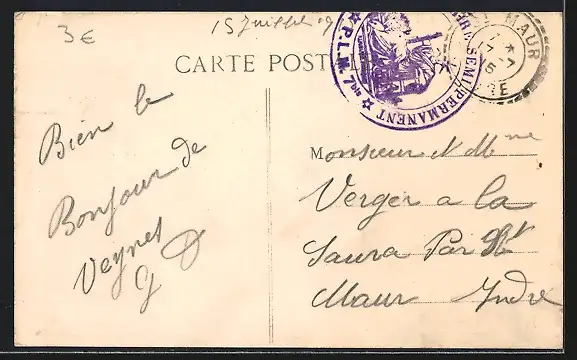 3€
15 Juillet
CARTE POST
P.L.M. SEMI-PERMANENT
MAUR
RE
Bien le
Bonjour de
Veynes
Monsieur & Mme
Verger a la
Saura Par St
Maur Indre